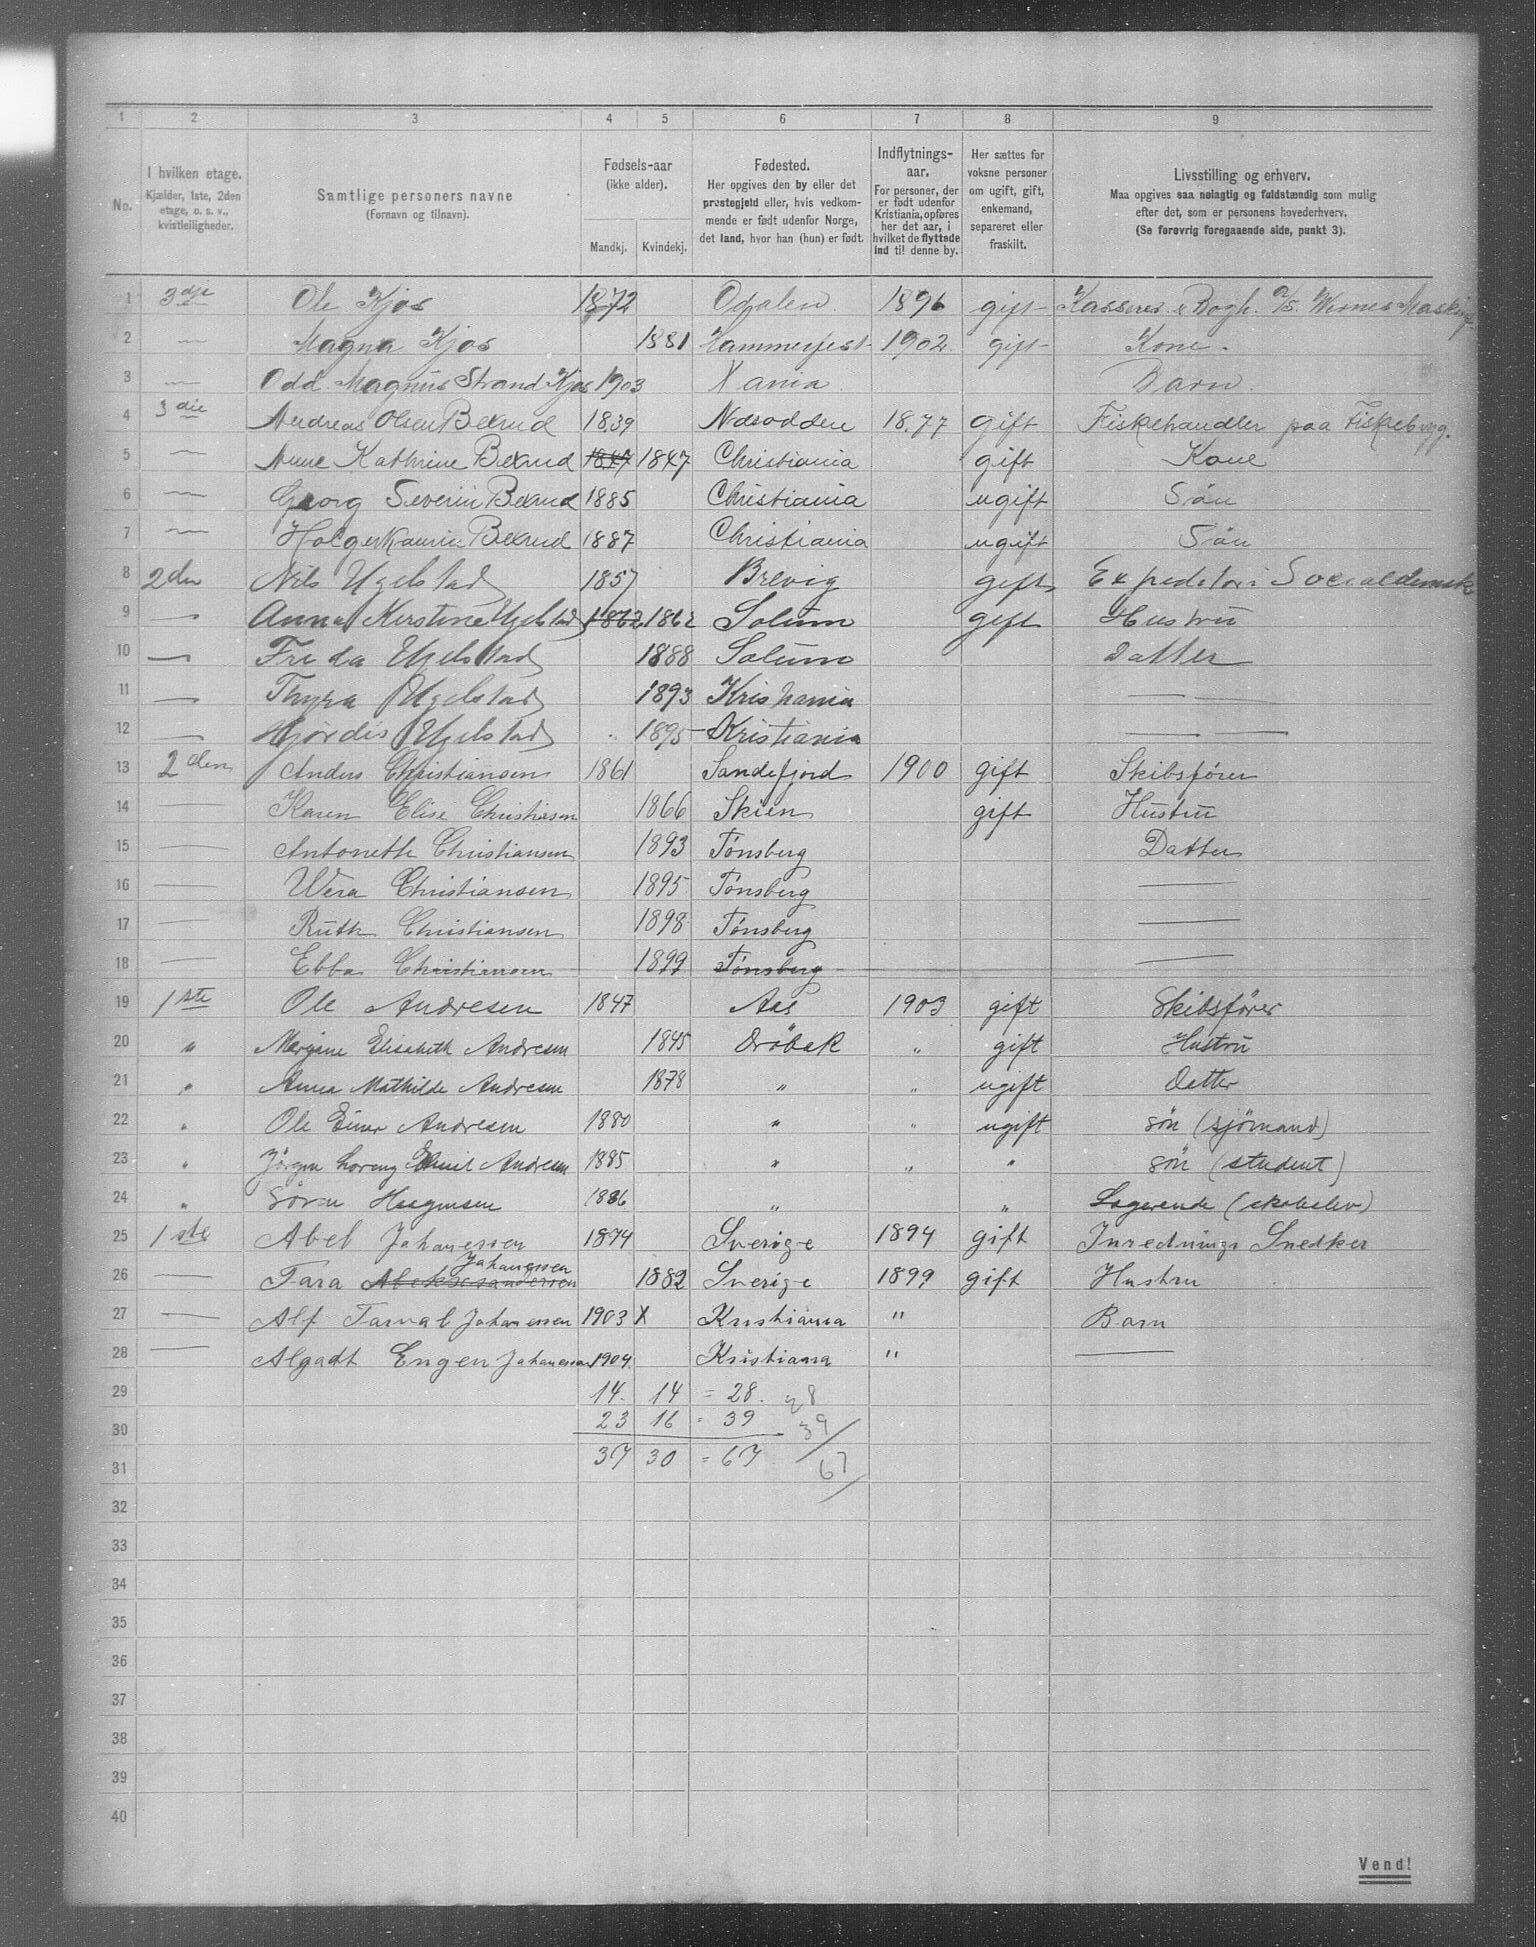 1 2 3 4 5 6 7 8 9
No.
I hvilken etage.
Kjælder, 1ste, 2den
etage, o. s. v.,
kvistleiligheder.
Samtlige personers navne
(Fornavn og tilnavn).
Fødsels-aar
(ikke alder).
Mandkj. Kvindekj.
Fødested.
Her opgives den by eller det
prestegjeld eller, hvis vedkom-
mende er født udenfor Norge,
det land, hvor han (hun) er født.
Indflytnings-
aar.
For personer, der
er født udenfor
Kristiania, opføres
her det aar, i
hvilket de flyttede
ind til denne by.
Her sættes for
voksne personer
om ugift, gift,
enkemand,
separeret eller
fraskilt.
Livsstilling og erhverv.
Maa opgives saa nøiagtig og fuldstændig som mulig
efter det, som er personens hovederhverv.
(Se forøvrig foregaaende side, punkt 3).
1 3dje Ole Kjos 1872 Odalen 1896 gift Kasserer & Bogh. A/S
2 — Magna Kjos 1881 Hammerfest 1902 gift Kone.
3 — Odd Magnus Strand Kjos 1903 Xania Barn.
4 3die Andreas Olsen 1839 Næsodden 1877 gift Fiskehandler paa Fiskebryg.
5 — Anne Kathrine 1847 1847 Christiania gift Kone
6 — Georg Severin 1885 Christiania ugift Sön
7 — Holger 1887 Christiania ugift Sön
8 2den Nils Ugelstad 1857 Brevig gift Expeditør i Socialdemok
9 — Anna Kirstine Ugelstad 1862 1862 Solum gift Hustru
10 — Frida Ugelstad 1888 Solum Datter
11 — Thyra Ugelstad 1893 Kristiania — —
12 — Hjørdis Ugelstad 1895 Kristiania — —
13 2den Anders Christiansen 1861 Sandefjord 1900 gift Skibsfører
14 — Karen Elise Christiansen 1866 Skien gift Hustru
15 — Antoneth Christiansen 1893 Tønsberg Datter
16 — Wera Christiansen 1895 Tønsberg —
17 — Ruth Christiansen 1898 Tønsberg —
18 — Ebba Christiansen 1899 Tønsberg —
19 1ste Ole Andresen 1847 Aas 1903 gift Skibsfører
20 " Elisabeth Andresen 1845 Drøbak " gift Hustru
21 " Anna Mathilde Andresen 1878 " " ugift Datter
22 " Ole Einar Andresen 1880 " " ugift sön (sjömand)
23 " Jörgen Lorenz Emil Andresen 1885 " " " sön (student)
24 " Sören 1886 " " Logerende (skoleelev)
25 1ste Abel Johanessen 1874 Sverige 1894 gift Inrednings Snedker
Johanessen
26 — Tara Aleksandersen 1882 Sverige 1899 gift Hustru
27 — Alf Johanessen 1903 X Kristiania " Barn
28 — Engen Johanessen 1904 Kristiania " —
29 14. 14 = 28. 28
30 23 16 = 39 39
31 37 30 = 67 67
32
33
34
35
36
37
38
39
40
Vend!